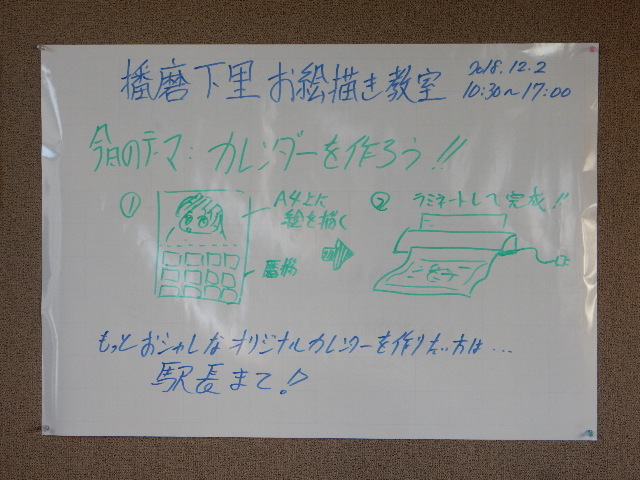 播磨下里お絵描き教室
2018.12.2
10:30～17:00
今日のテーマ：カレンダーを作ろう!!
①
A4上に
絵を描く
暦
②
ラミネートして完成!!
もっとおシャレなオリジナルカレンダーを作りたい方は…
駅長まで!